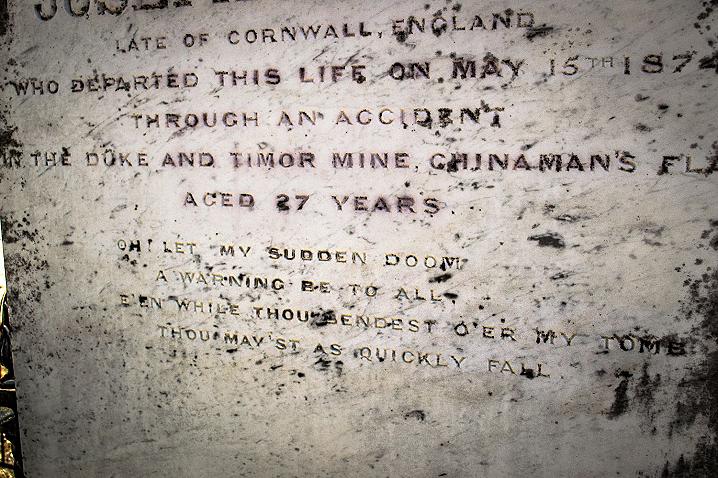 LATE OF CORNWALL, ENGLAND,
WHO DEPARTED THIS LIFE ON MAY 15TH 1874
THROUGH AN ACCIDENT
IN THE DUKE AND TIMOR MINE, CHINAMAN'S FL
AGED 27 YEARS.
OH! LET MY SUDDEN DOOM
A WARNING BE TO ALL,
E'EN WHILE THOU BENDEST O'ER MY TOMB
THOU MAY'ST AS QUICKLY FALL